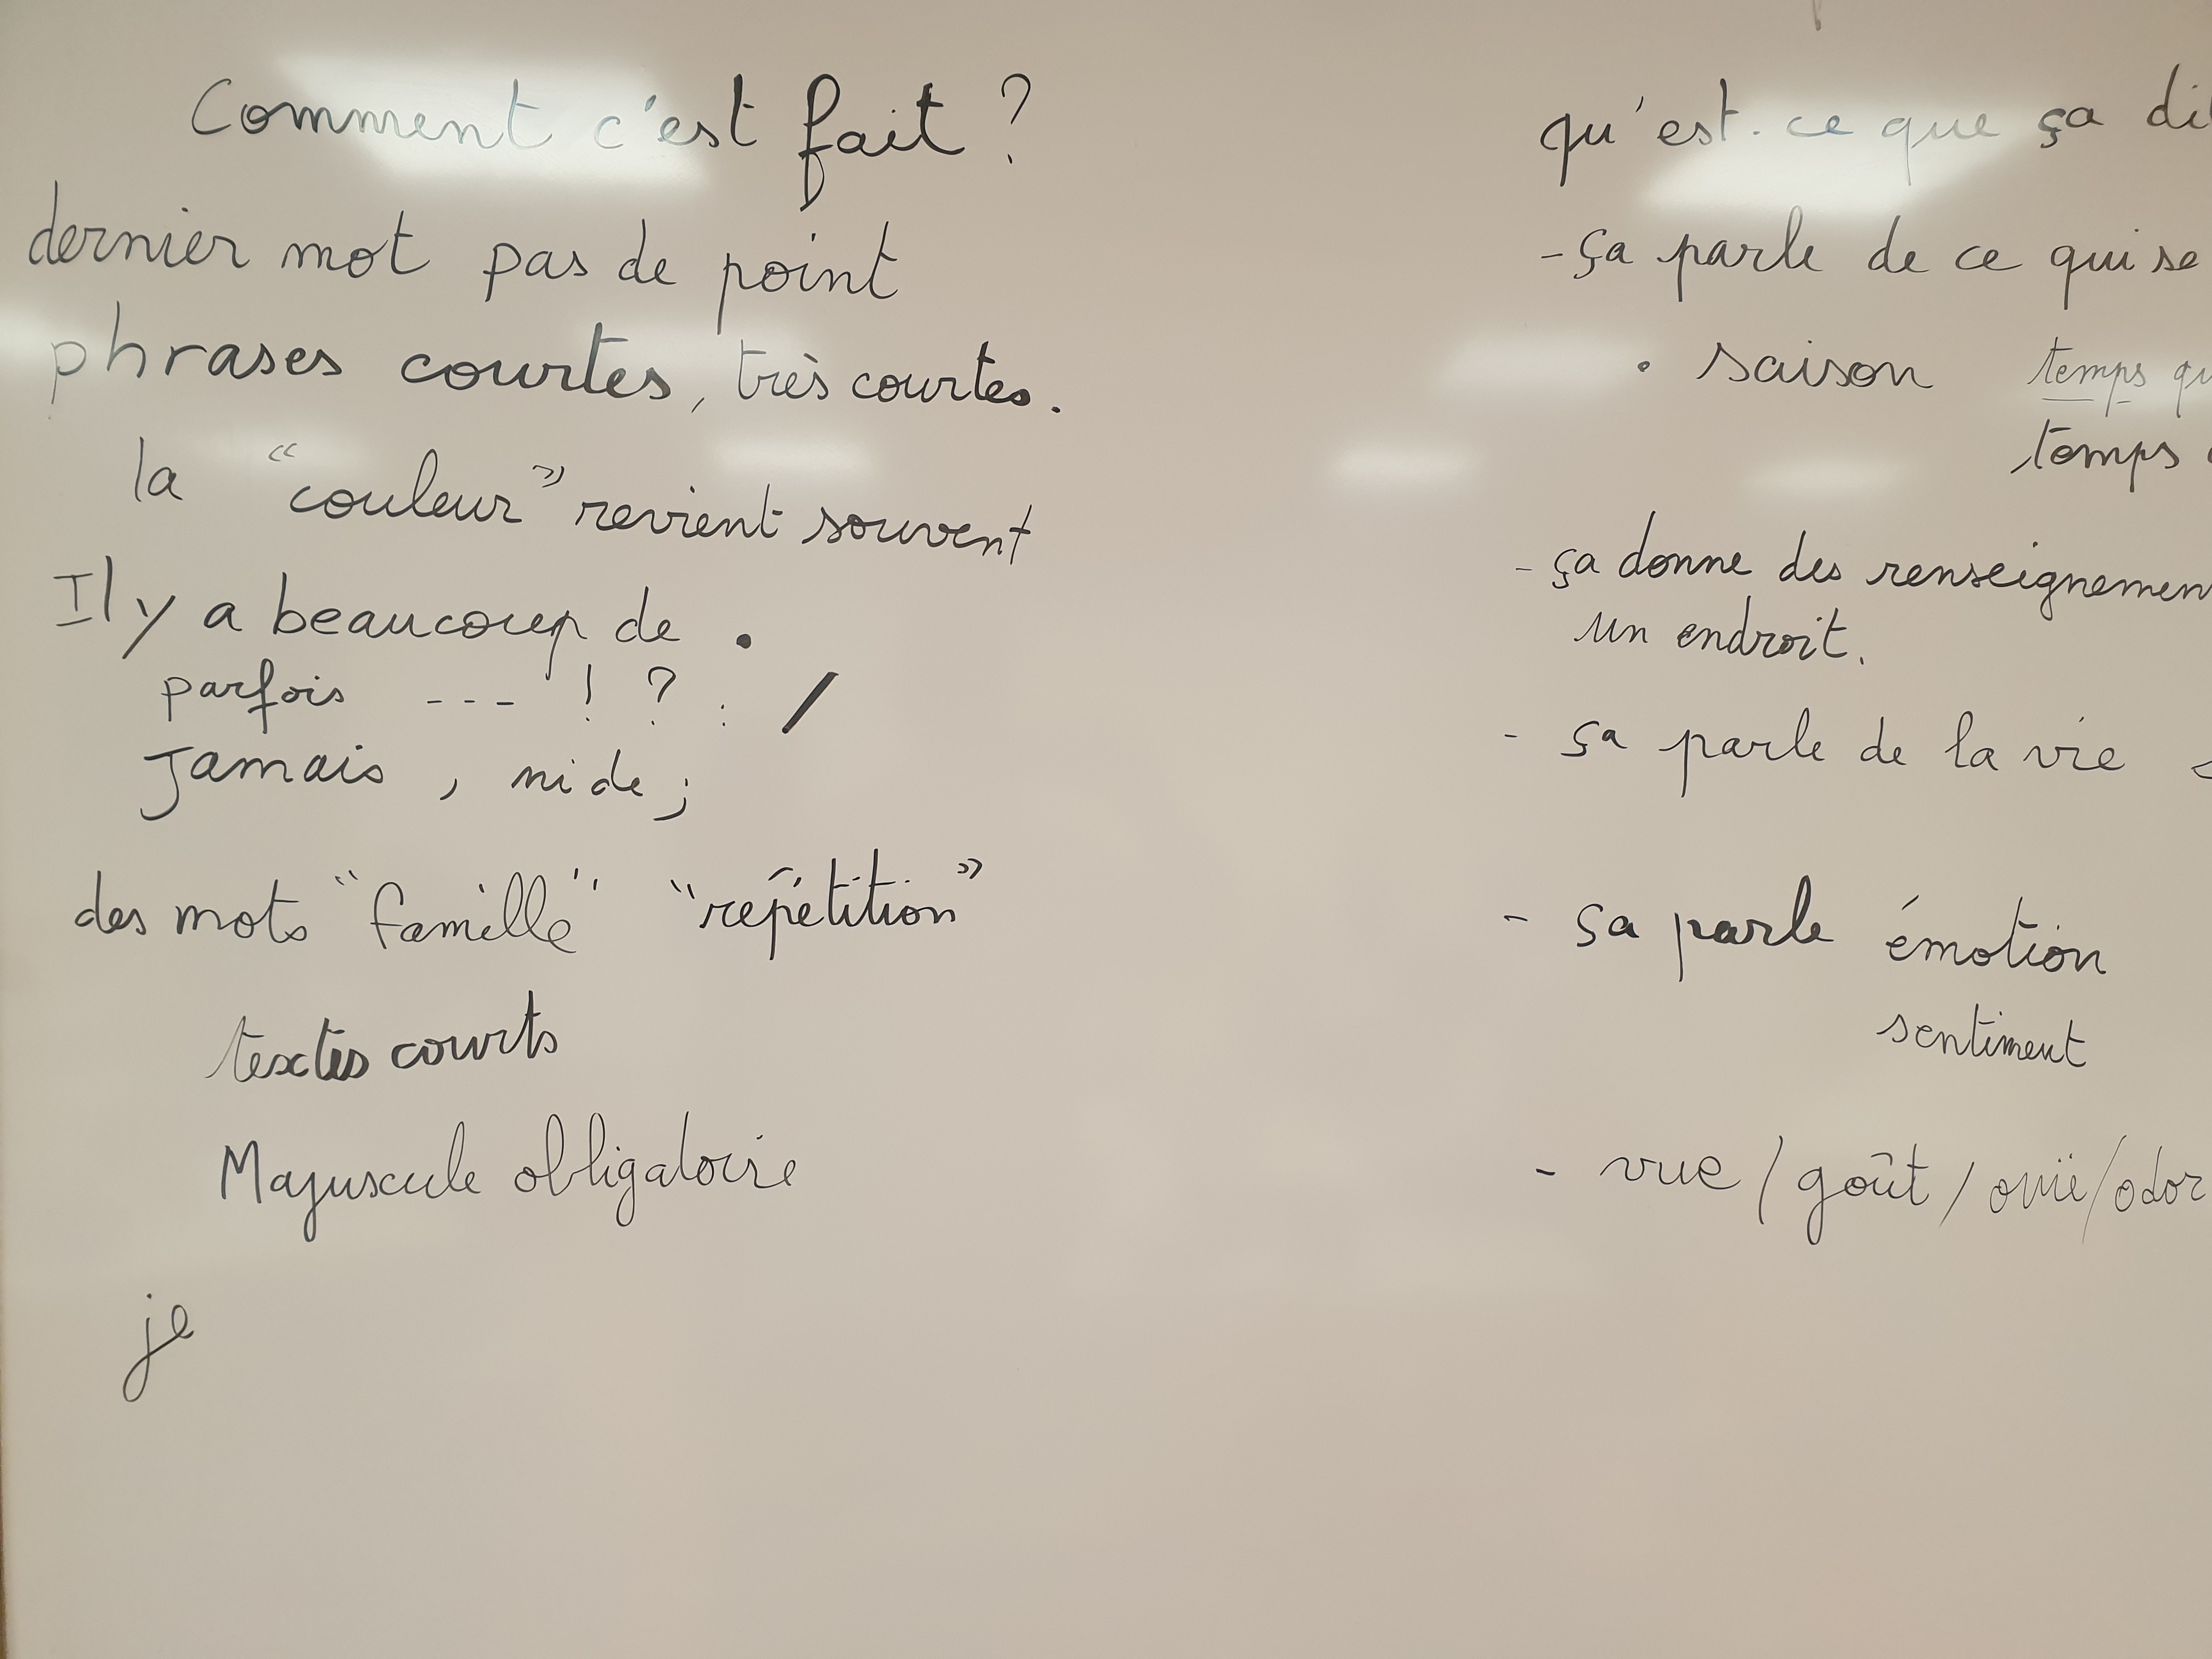 Comment c'est fait ?
dernier mot pas de point
phrases courtes, très courtes.
la "couleur" revient souvent
Il y a beaucoup de .
parfois --- ! ? : /
Jamais , ni de ;
des mots "famille" "répétition"
textes courts
Majuscule obligatoire
je
qu'est-ce que ça dit
- ça parle de ce qui se
• saison temps qu
temps
- ça donne des renseignemen
un endroit.
- ça parle de la vie
- ça parle émotion
sentiment
- vue / goût / ouïe / odor